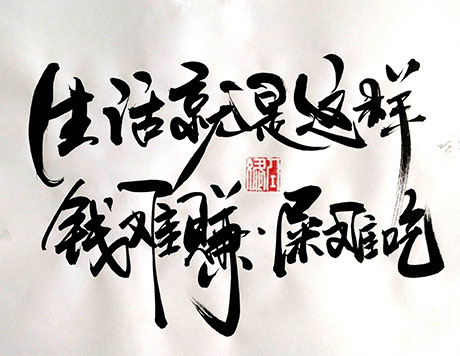 生活就是这样
钱难赚·屎难吃